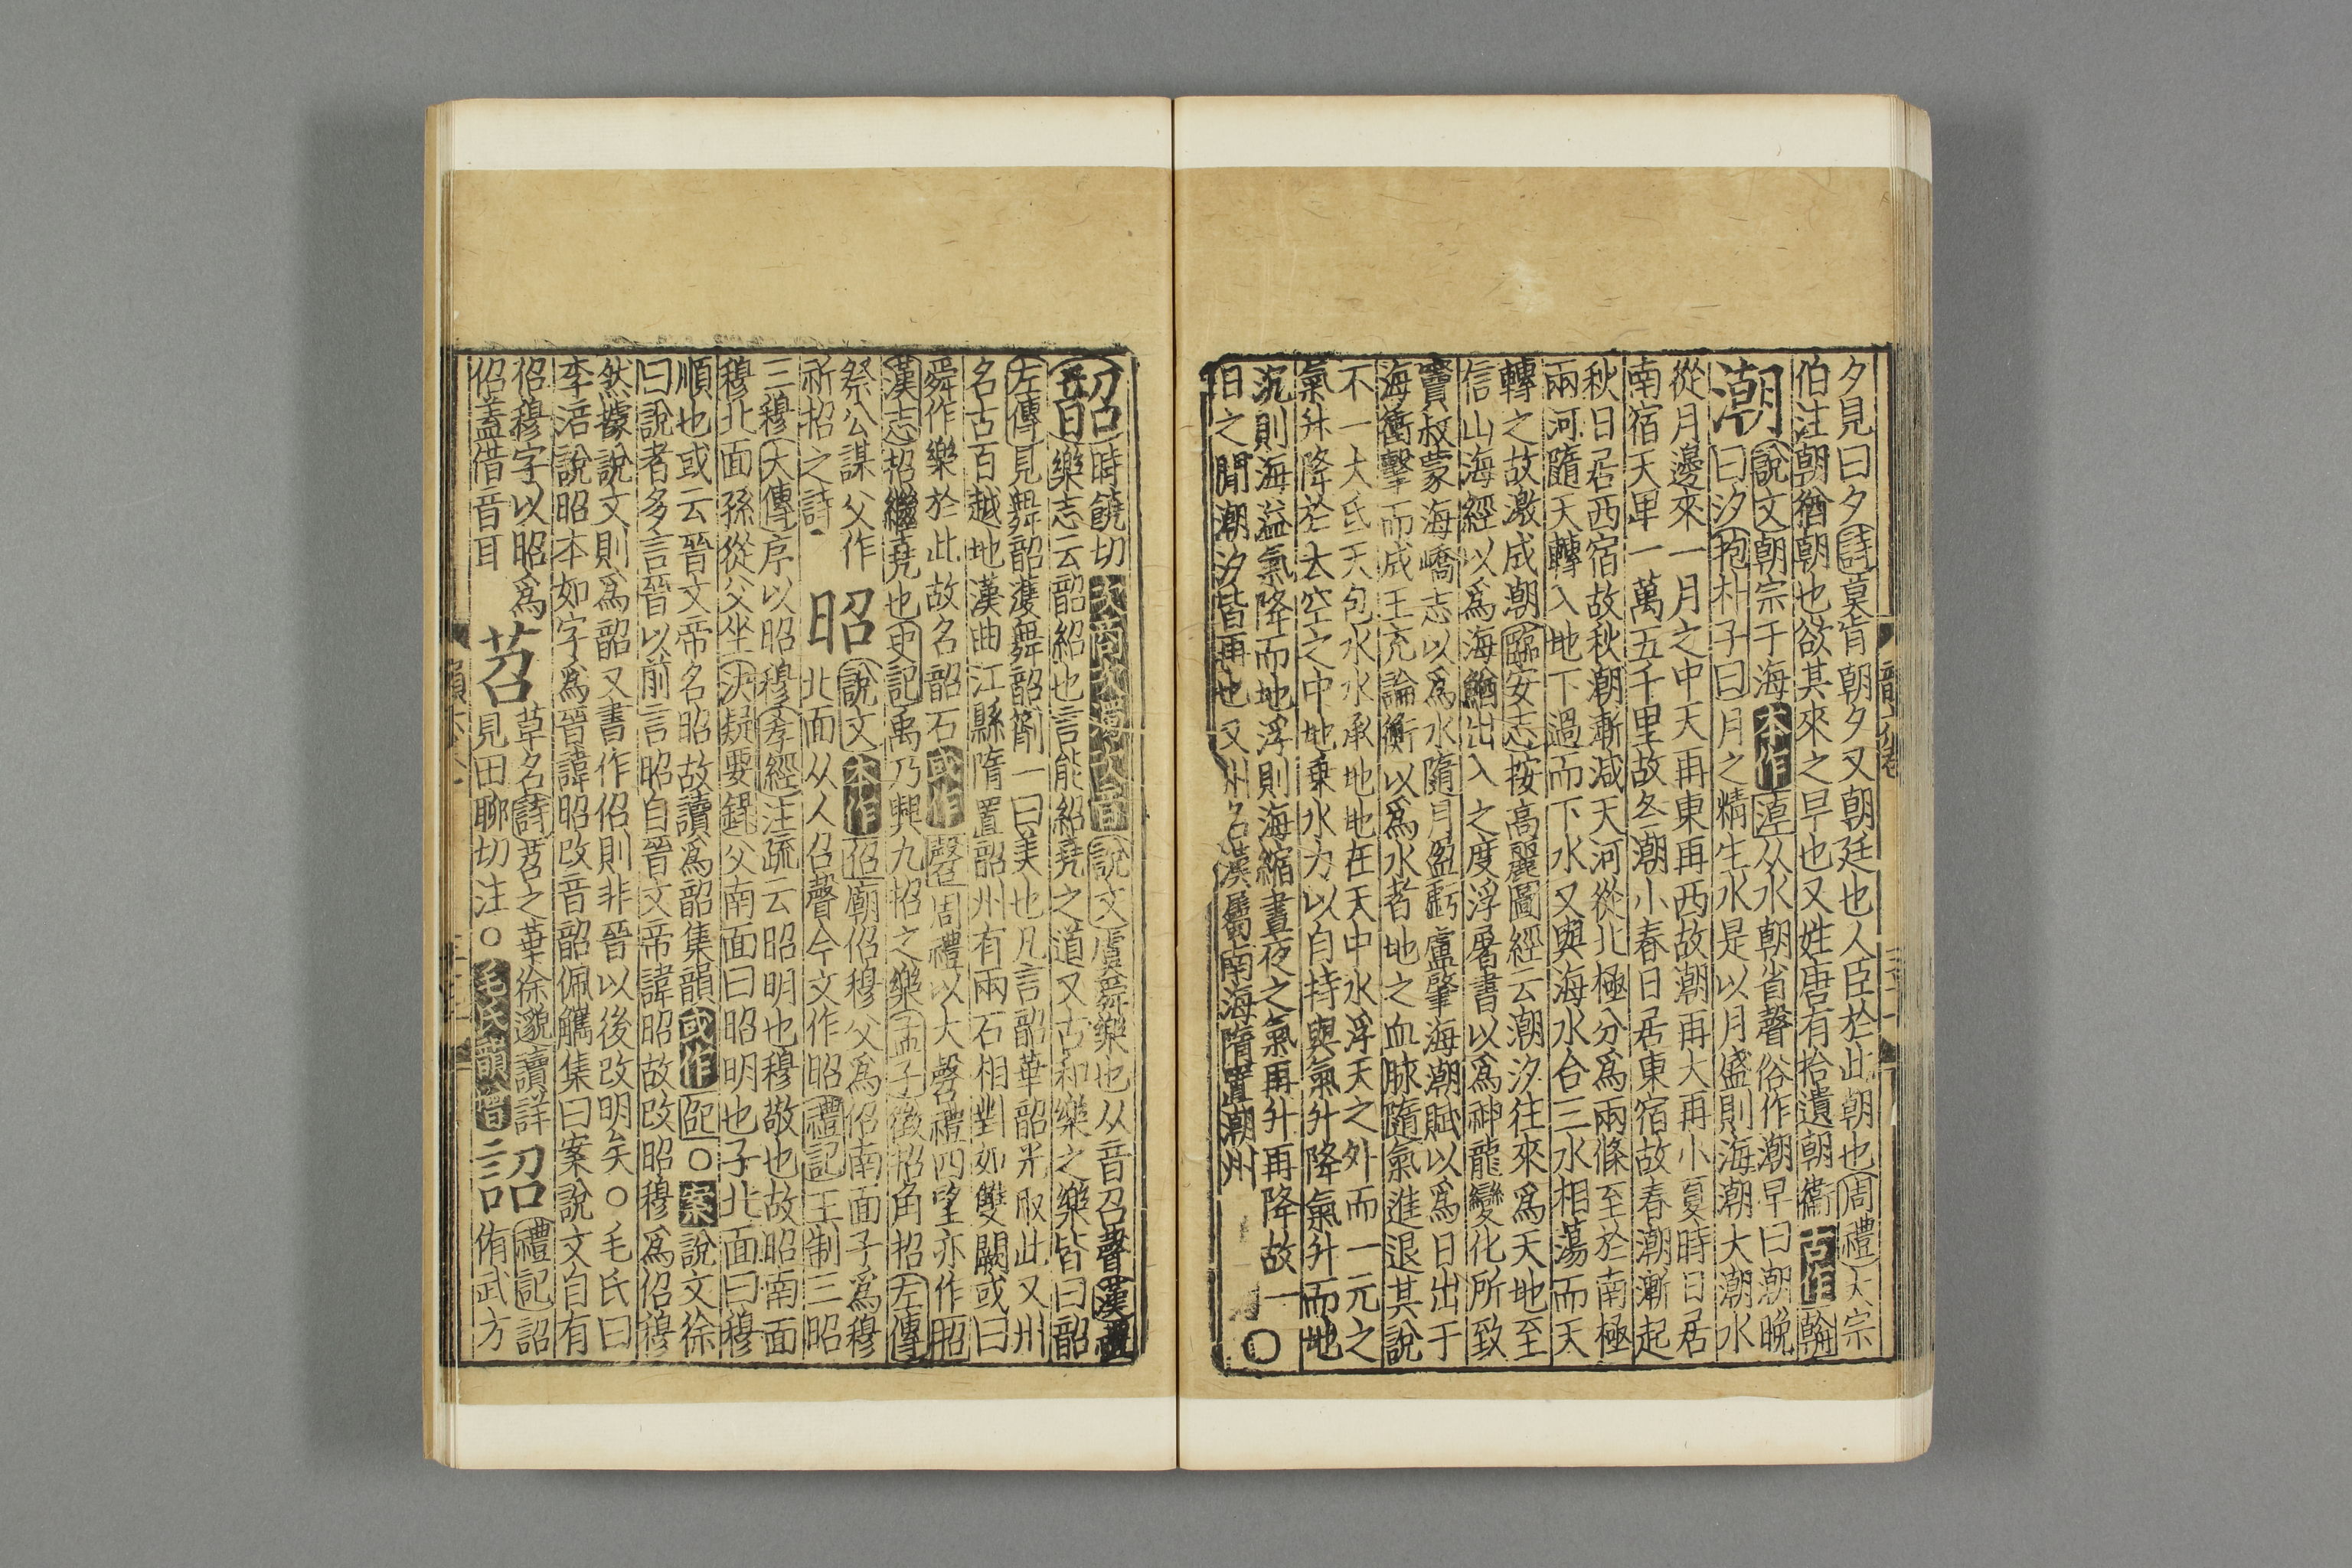 夕見曰夕詩莫肯朝夕又朝廷也人臣於此朝也周禮大宗
伯注朝猶朝也欲其來之早也又姓唐有拾遺朝衡古作
潮
說文朝宗于海本作淖从水朝省聲俗作潮早曰潮晚
曰汐抱朴子曰月之精生水是以月盛則海潮大潮水
從月邊來一月之中天再東再西故潮再大再小夏時日居
南宿天卑一萬五千里故冬潮小春日居東宿故春潮漸起
秋日居西宿故秋潮漸減天河從北極分為兩條至於南極
兩河隨天轉入地下過而下水又與海水合三水相蕩而天
轉之故激成潮臨安志按高麗圖經云潮汐往來為天地至
信山海經以為海鰌出入之度浮屠書以為神龍變化所致
竇叔蒙海嶠志以為水隨月盈虧盧肇海潮賦以為日出于
海衝擊而成王充論衡以為水者地之血脉隨氣進退其說
不一大氐天包水水承地地在天中水浮天之外而一元之
氣升降於太空之中地乗水力以自持與氣升降氣升而地
沉則海溢氣降而地浮則海縮晝夜之氣再升再降故一
日之間潮汐皆再也又州名漢屬南海隋置潮州○
韶
時饒切
說文虞舜樂也从音召聲漢
樂志云韶紹也言能紹堯之道又古和樂之樂皆曰韶
左傳見舞韶濩舞韶箾一曰美也凡言韶華韶光取此又州
名古百越地漢曲江縣隋置韶州有兩石相對如雙闕或曰
舜作樂於此故名韶石或作磬周禮以大磬禮四望亦作昭
漢志招繼堯也史記禹乃興九招之樂孟子徵招角招左傳
祭公謀父作
祈招之詩
昭
說文本作佋廟佋穆父為佋南面子為穆
北面从人召聲今文作昭禮記王制三昭
三穆大傳序以昭穆孝經注疏云昭明也穆敬也故昭南面
穆北面孫從父坐決疑要錄父南面曰昭明也子北面曰穆
順也或云晉文帝名昭故讀為韶集韻或作○案說文徐
曰說者多言晉以前言昭自晉文帝諱昭故改昭穆為佋穆
然據說文則為韶又書作佋則非晉以後改明矣○毛氏曰
李涪說昭本如字為晉諱昭改音韶佩觿集曰案說文自有
佋穆字以昭為
佋蓋借音耳
苕
草名詩苕之華徐邈讀詳
見田聊切注○毛氏韻增
詔
禮記詔
侑武方